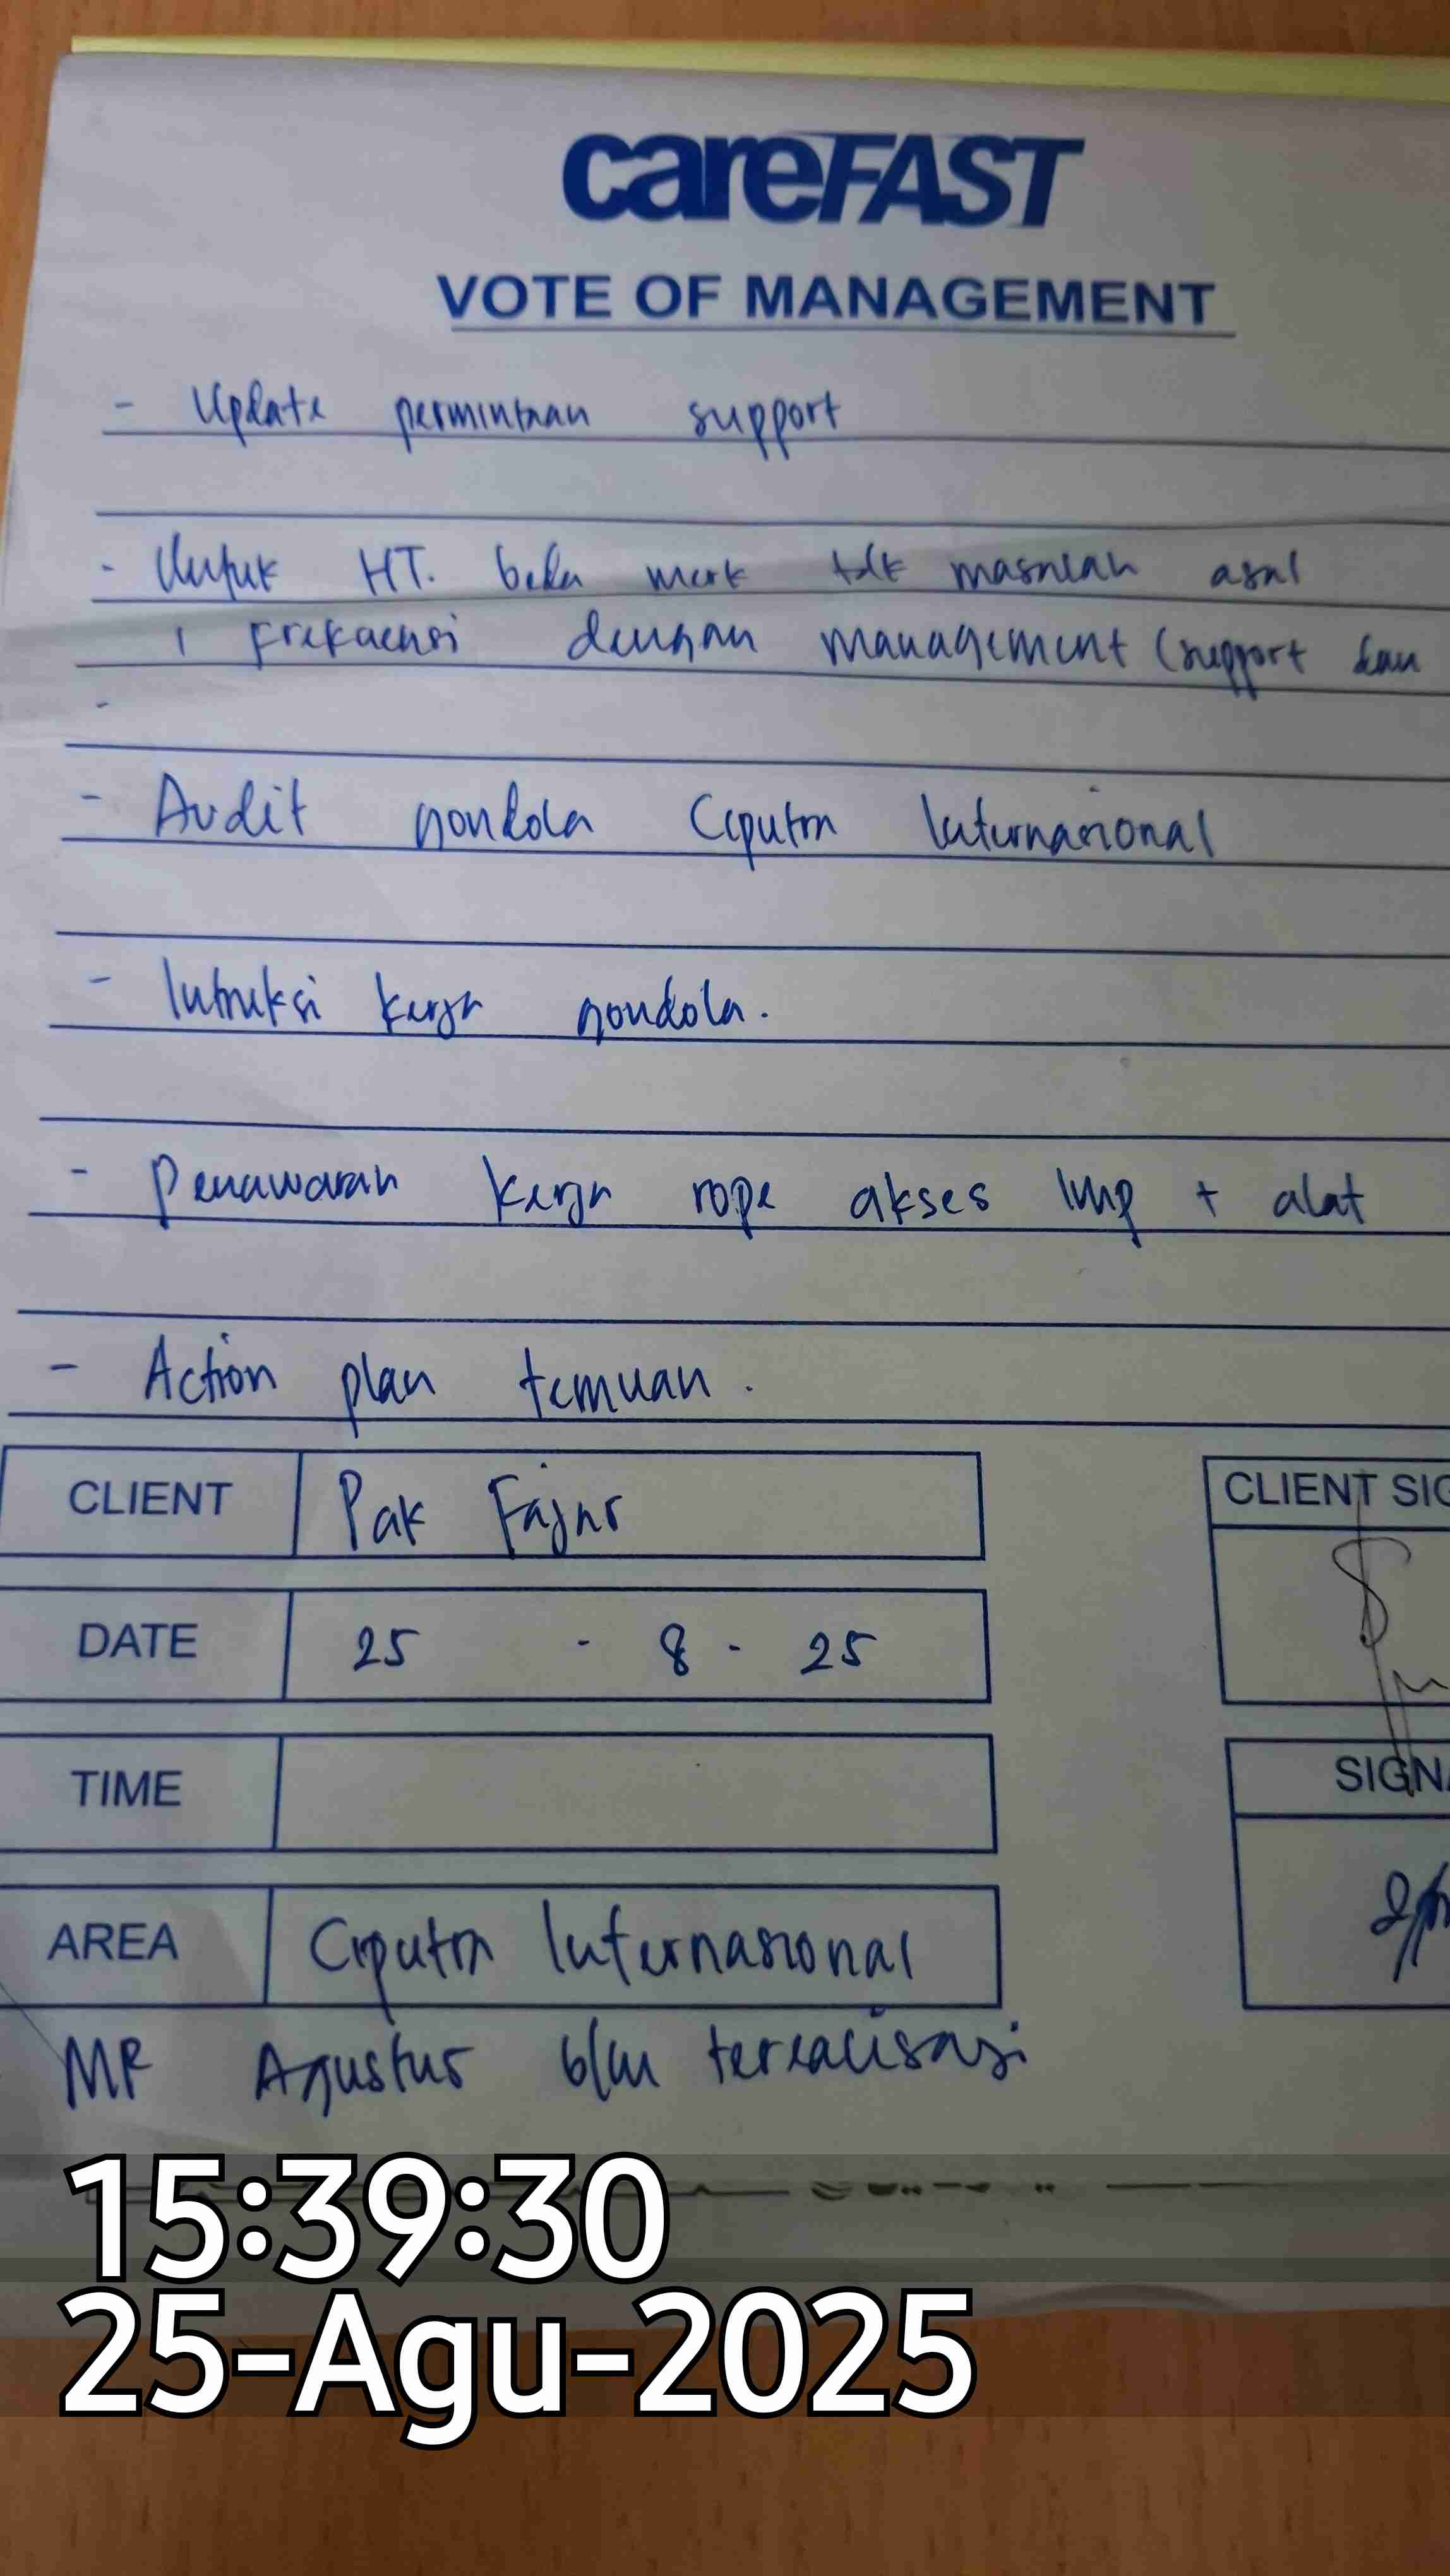 careFAST
VOTE OF MANAGEMENT
- Update permintaan support
- Untuk HT. beda merk tdk masalah asal
1 Frekuensi dengan management (support dan
-
- Audit gondola Ciputra Internasional
- Intruksi kerja gondola.
- Penawaran kerja rope akses + alat
- Action plan temuan.
CLIENT Pak Fajar
CLIENT SIG
DATE 25 - 8 - 25
TIME
SIGNA
AREA Ciputra Internasional
MR Agustus blm terealisasi
15:39:30
25-Agu-2025